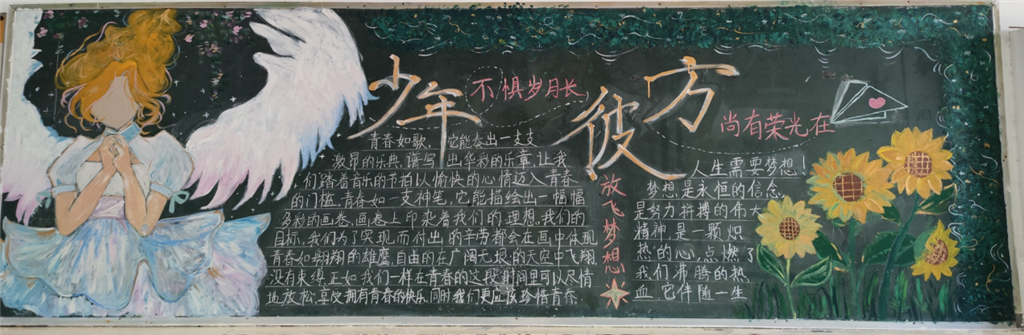 少年 不惧岁月长
彼方 尚有荣光在
青春如歌、它能奏出一支支
激昂的乐典,谱写出华彩的乐章,让我
们踏着音乐的节拍以愉快的心情迈入青春
的门槛。青春如一支神笔,它能描绘出一幅幅
多彩的画卷,画卷上印染着我们的理想,我们的
目标,我们为了实现而付出的辛劳都会在画中体现
青春如翱翔的雄鹰,自由的在广阔无垠的天空中飞翔
没有束缚,正如我们一样在青春的这段时间里可以尽情
地放松,享受拥有青春的快乐,同时我们更应该珍惜青春
放飞梦想
人生需要梦想!
梦想是永恒的信念
是努力拼搏的伟大
精神是一颗炽
热的心,点燃了
我们沸腾的热
血,它伴随一生